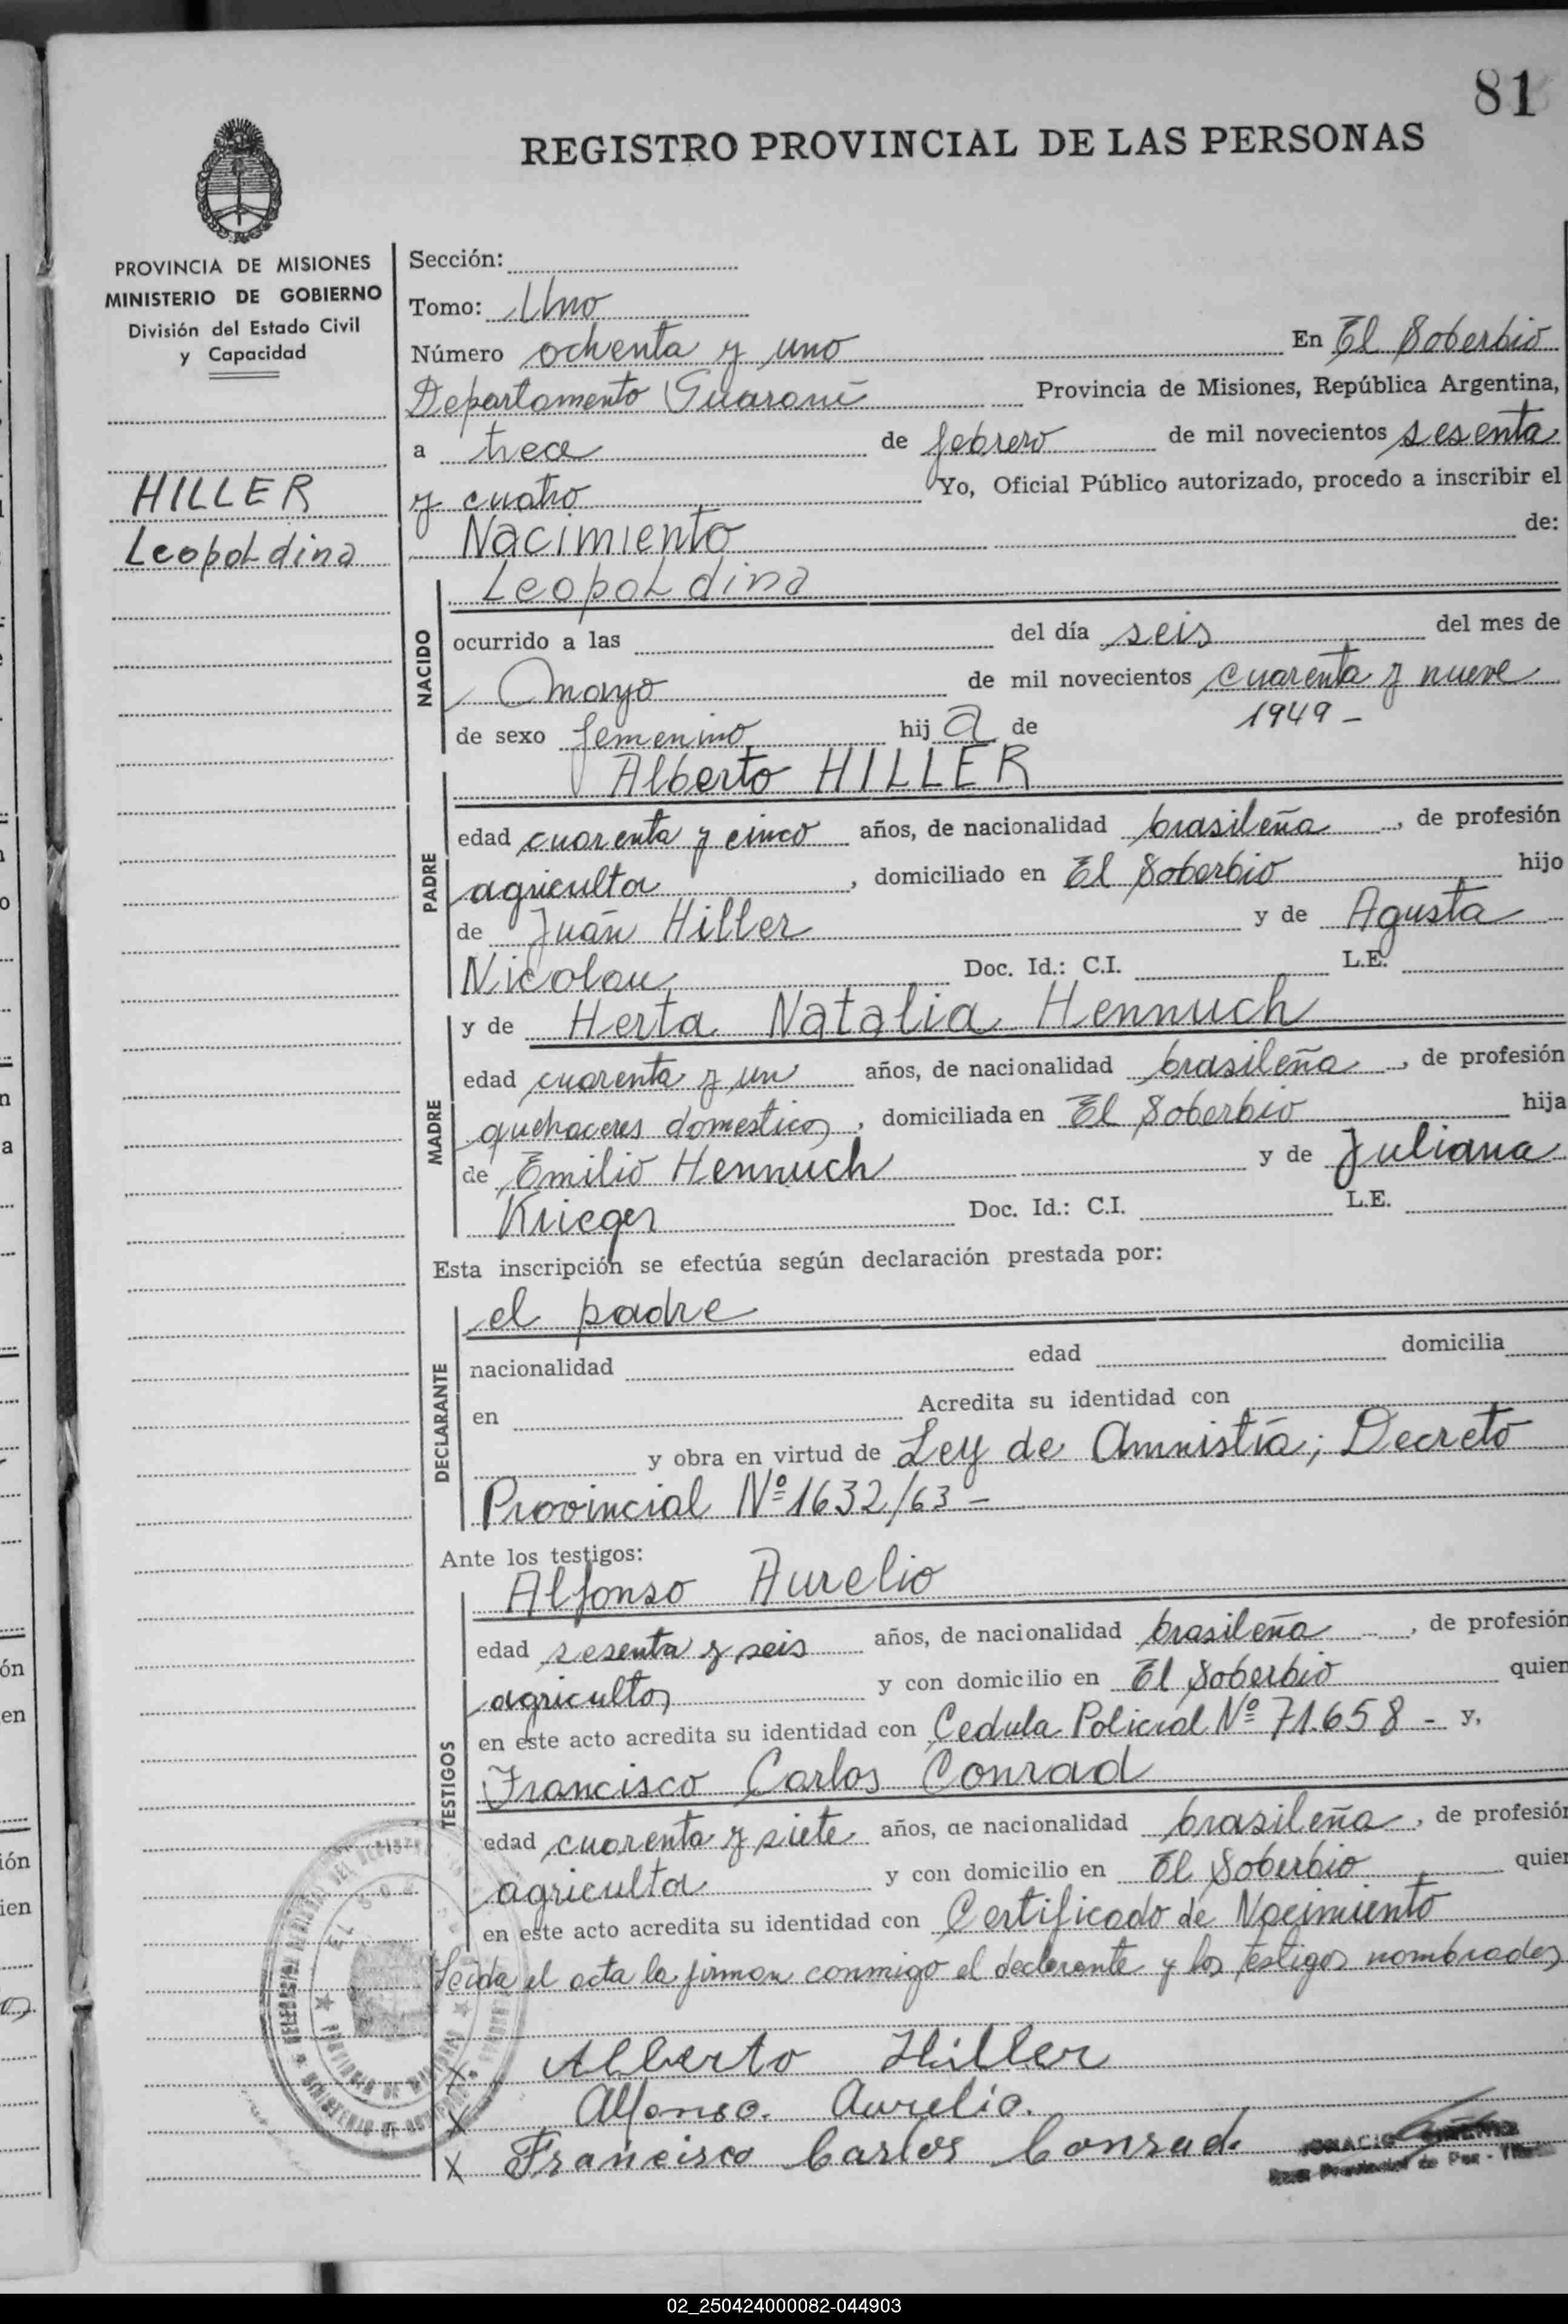 81
REGISTRO PROVINCIAL DE LAS PERSONAS
PROVINCIA DE MISIONES
MINISTERIO DE GOBIERNO
División del Estado Civil
y Capacidad
HILLER
Leopoldina
Sección:
Tomo: Uno
Número ochenta y uno En El Soberbio
Departamento Guaraní Provincia de Misiones, República Argentina,
a trece de febrero de mil novecientos sesenta
y cuatro Yo, Oficial Público autorizado, procedo a inscribir el
Nacimiento de:
NACIDO
Leopoldina
ocurrido a las del día seis del mes de
mayo de mil novecientos cuarenta y nueve
1949 -
de sexo femenino hij a de
PADRE
Alberto HILLER
edad cuarenta y cinco años, de nacionalidad brasileña, de profesión
agricultor, domiciliado en El Soberbio hijo
de Juan Hiller y de Agusta
Nicolau Doc. Id.: C.I. L.E.
MADRE
y de Herta Natalia Hennuch
edad cuarenta y un años, de nacionalidad brasileña, de profesión
quehaceres domesticos, domiciliada en El Soberbio hija
de Emilio Hennuch y de Juliana
Krieger Doc. Id.: C.I. L.E.
Esta inscripción se efectúa según declaración prestada por:
DECLARANTE
el padre
nacionalidad edad domicilia
en Acredita su identidad con
y obra en virtud de Ley de Amnistía; Decreto
Provincial Nº 1632/63 -
Ante los testigos:
TESTIGOS
Alfonso Aurelio
edad sesenta y seis años, de nacionalidad brasileña, de profesión
agricultor y con domicilio en El Soberbio quien
en este acto acredita su identidad con Cedula Policial Nº 71.658 - y,
Francisco Carlos Conrad
edad cuarenta y siete años, de nacionalidad brasileña, de profesión
agricultor y con domicilio en El Soberbio quien
en este acto acredita su identidad con Certificado de Nacimiento
Leida el acta la firman conmigo el declarante y los testigos nombrados
X Alberto Hiller
X Alfonso. Aurelio.
X Francisco Carlos Conrad.
HORACIO
02_250424000082-044903